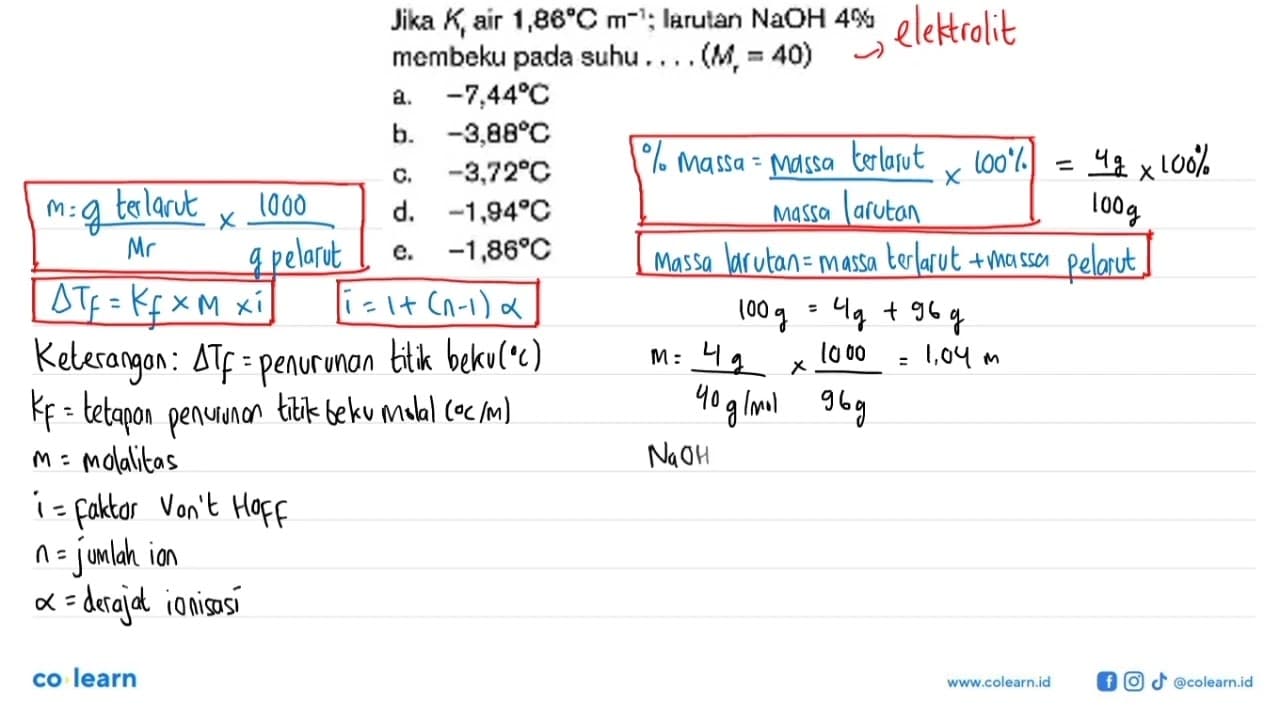 Jika Kf air 1,86°C m⁻¹; larutan NaOH 4%
membeku pada suhu . . . . (Mr = 40)
→ elektrolit
a. −7,44°C
b. −3,88°C
c. −3,72°C
d. −1,94°C
e. −1,86°C
m = g terlarut / Mr × 1000 / g pelarut
ΔTf = Kf × M × i
i = 1 + (n-1) α
Keterangan: ΔTf = penurunan titik beku (°c)
Kf = tetapan penurunan titik beku molal (°c/m)
m = molalitas
i = faktor Van't Hoff
n = jumlah ion
α = derajat ionisasi
% Massa = Massa terlarut / Massa larutan × 100% = 4g / 100g × 100%
Massa larutan = massa terlarut + massa pelarut
100g = 4g + 96g
M = 4g / 40g/mol × 1000 / 96g = 1,04 m
NaOH
co learn
www.colearn.id
@colearn.id